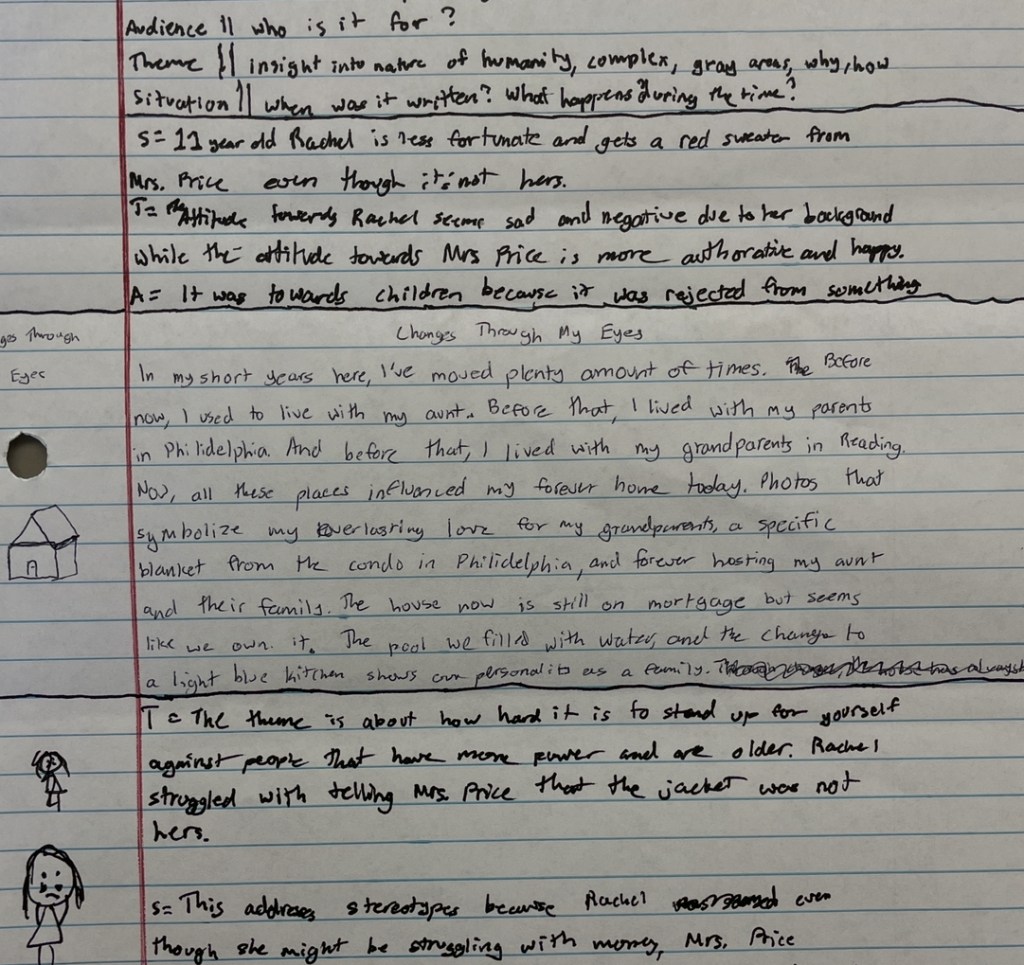 Audience || who is it for?
Theme || insight into nature of humanity, complex, gray areas, why, how
Situation || when was it written? What happens during the time?
S= 11 year old Rachel is less fortunate and gets a red sweater from
Mrs. Price even though it's not hers.
T= Attitude towards Rachel seems sad and negative due to her background
while the attitude towards Mrs Price is more authorative and happy.
A= It was towards children because it was rejected from something
ges Through
Eyes
Changes Through My Eyes
In my short years here, I've moved plenty amount of times. Before
now, I used to live with my aunt. Before that, I lived with my parents
in Philidelphia. And before that, I lived with my grandparents in Reading.
Now, all these places influenced my forever home today. Photos that
symbolize my everlasting love for my grandparents, a specific
blanket from the condo in Philidelphia, and forever hosting my aunt
and their family. The house now is still on mortgage but seems
like we own it. The pool we filled with water, and the change to
a light blue kitchen shows our personality as a family.
T= The theme is about how hard it is to stand up for yourself
against people that have more power and are older. Rachel
struggled with telling Mrs. Price that the jacket was not
hers.
S= This address stereotypes because Rachel even
though she might be struggling with money, Mrs. Price